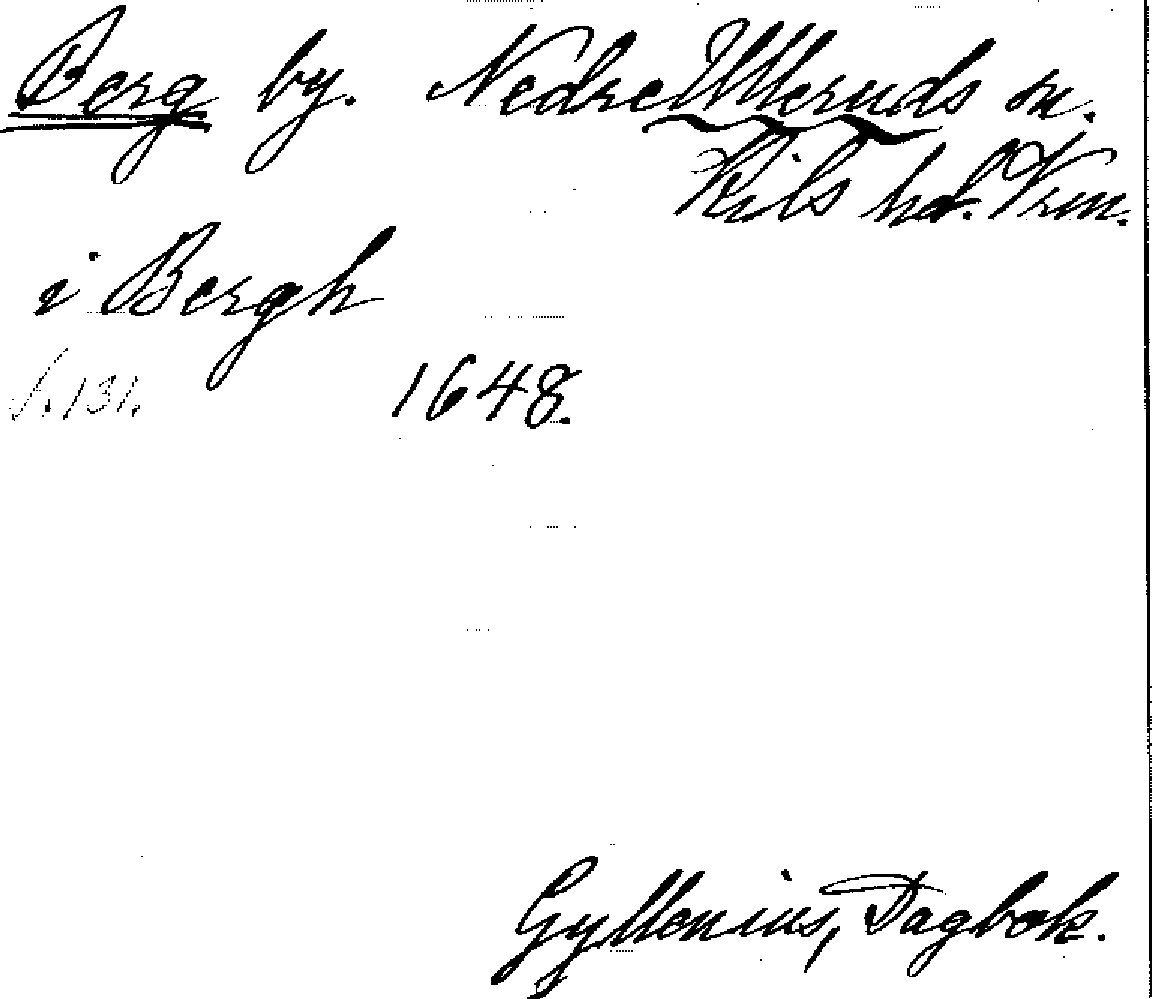 Berg by. Nedre Ulleruds sn.
Kils hd. Vrm.
i Bergh
s. 131. 1648.
Gyllenius, Dagbok.